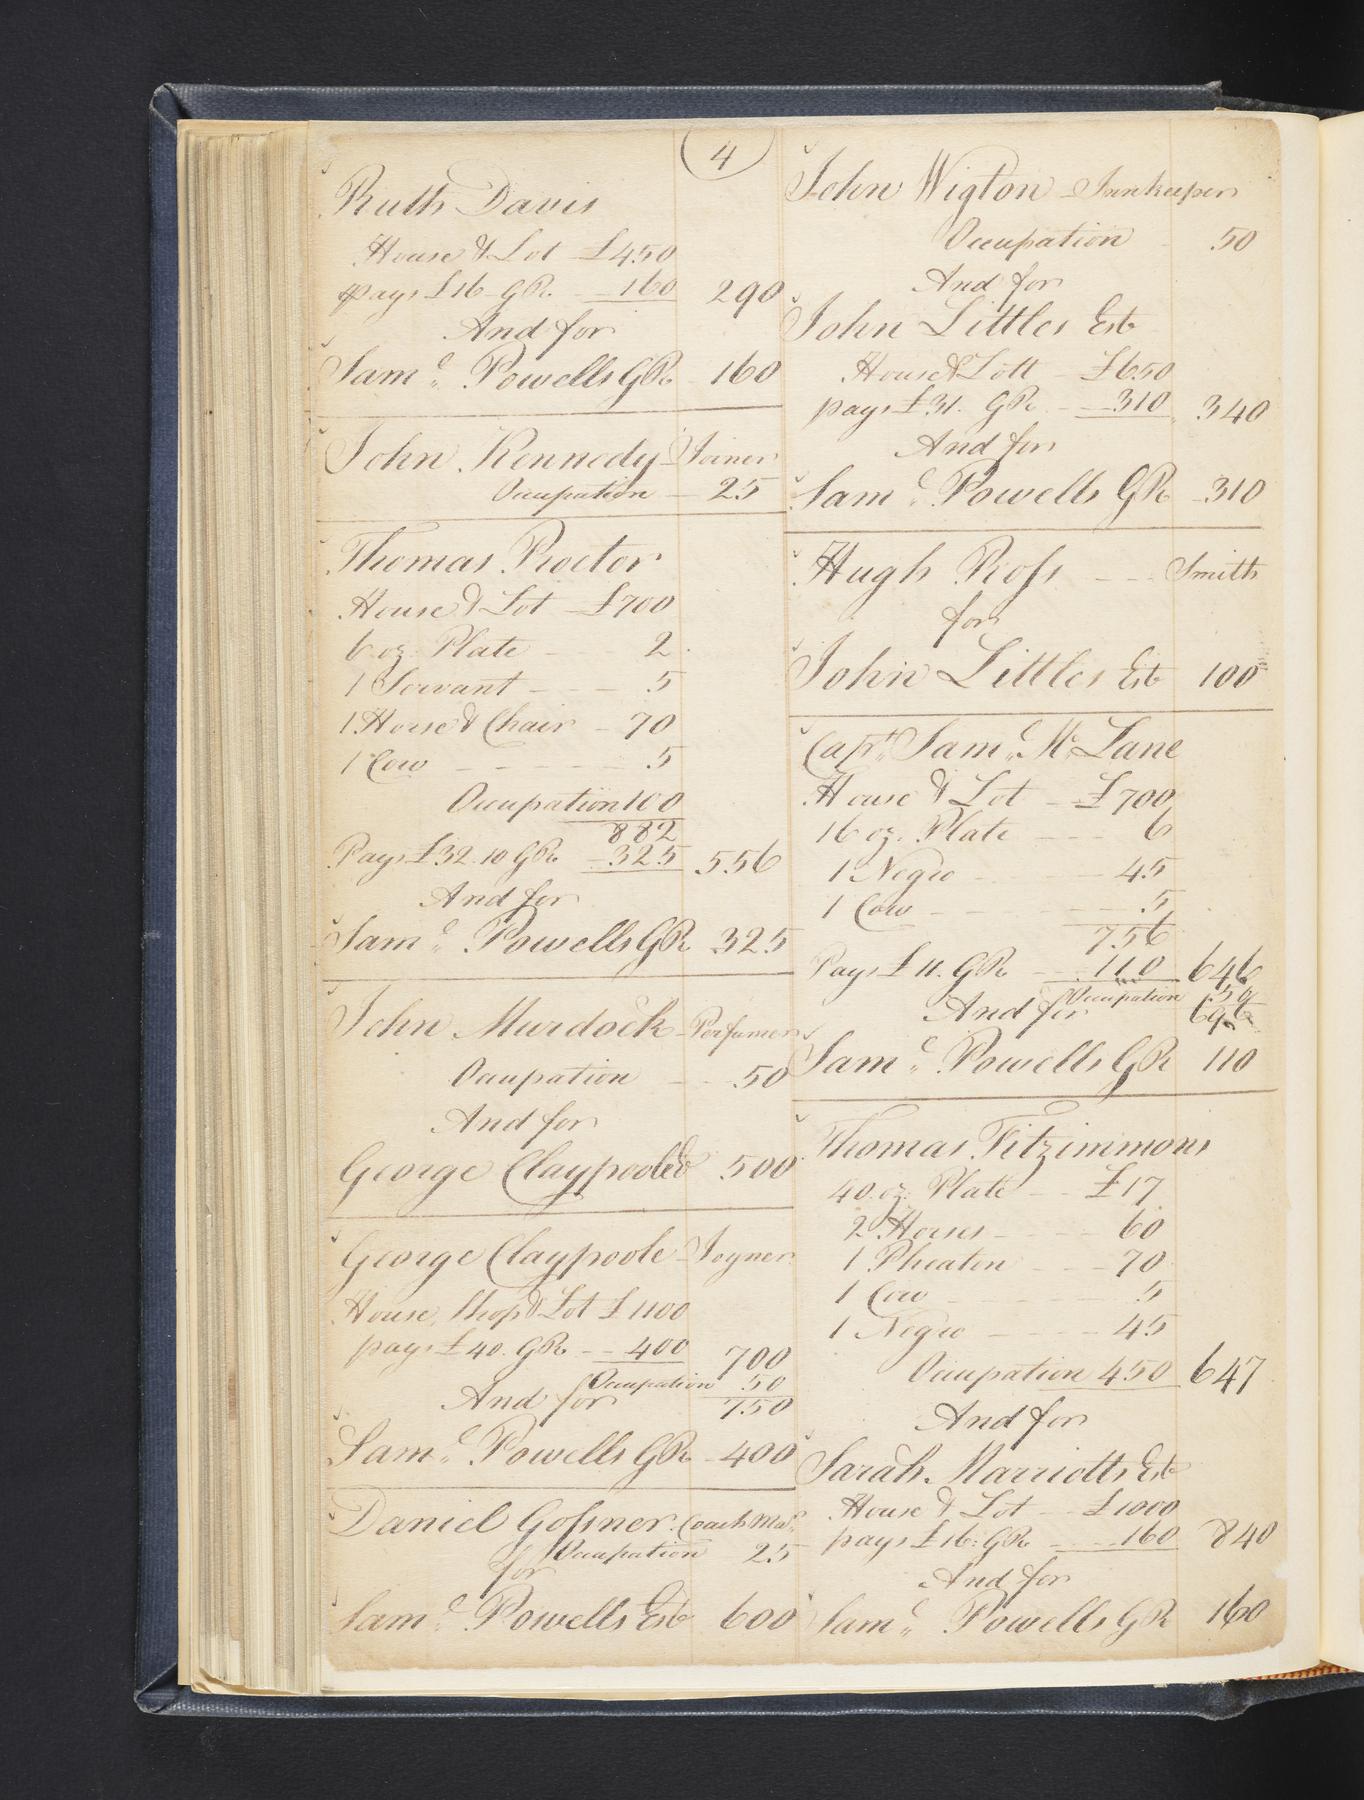 4
Ruth Davis
House & Lot £450
pays £16 GR 160 290
And for
Saml. Powells GR 160
John Kennedy Joiner
Occupation 25
Thomas Proctor
House & Lot £700
6 oz. Plate 2
1 Servant 5
1 Horse & Chair 70
1 Cow 5
Occupation 100
882
Pays £32.10 GR 325 556
And for
Saml. Powells GR 325
John Murdock Perfumer
Occupation 50
And for
George Claypooles 500
George Claypoole Joyner
House, Shop & Lot £1100
pays £40. GR 400 700
Occupation 50
And for 750
Saml. Powells GR 400
Daniel Gossner Coach Mar.
for Occupation 25
Saml. Powells Est 600
John Wigton Innkeeper
Occupation 50
And for
John Littles Est
House & Lott £650
pays £31. GR 310 340
And for
Saml. Powells GR 310
Hugh Ross Smith
for
John Littles Est 100
Capt. Saml. Mc.Lane
House & Lot £700
16 oz. Plate 6
1 Negro 45
1 Cow 5
756
Pays £11. GR 110 646
Occupation 50
And for 696
Saml. Powells GR 110
Thomas Fitzimmons
40 oz. Plate £17
2 Horses 60
1 Pheaton 70
1 Cow 5
1 Negro 45
Occupation 450 647
And for
Sarah Marriotts Est
House & Lot £1000
pays £16: GR 160 840
And for
Saml. Powells GR 160